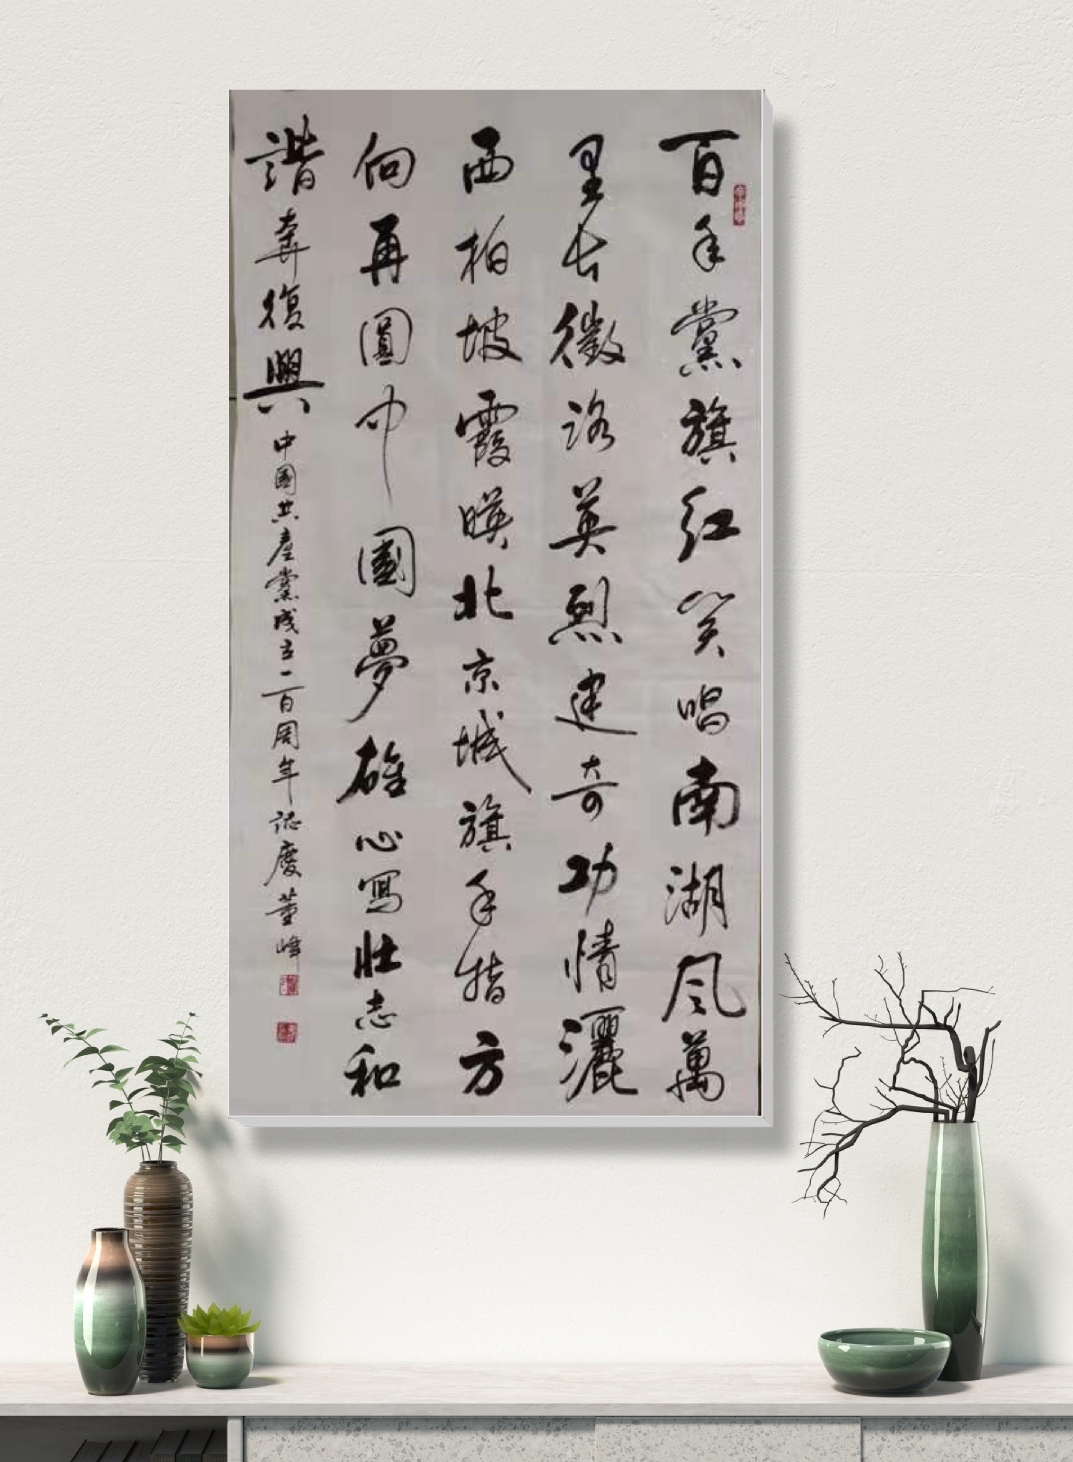 百年黨旗紅笑唱南湖風萬
里长徵路英烈建奇功情灑
西柏坡霞暎北京城旗手指方
向再圓中國夢雄心寫壮志和
諧奔復興
中國共產黨成立一百周年誌慶董峰